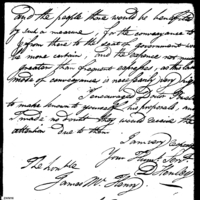 and the people there would be benefitted
by such a measure, for the conveyance to
& from there to the seat of government would
be more certain, and the
greater than frequent expresses as the
mode of conveyance is necessarily very
I encouraged
to make known to yourself, his proposals, and
I made no doubt they would receive the
attention due to them
I am very
Your Hum Serv
D Henley
The honble
James McHenry